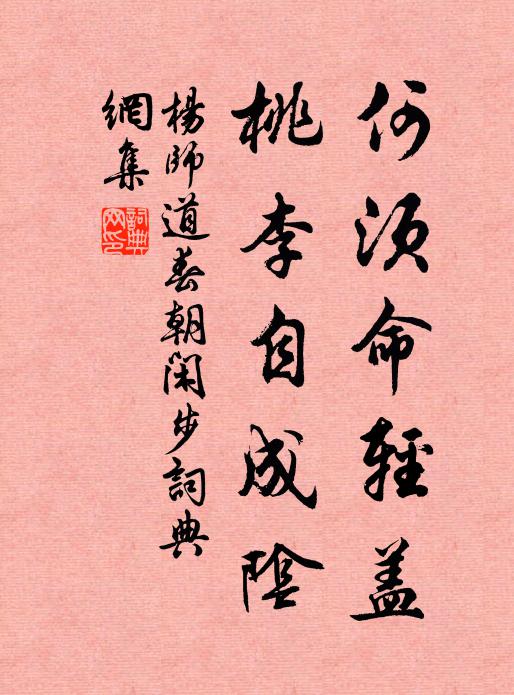 何須命輕蓋
桃李自成陰
楊師道春朝閑步詞典
網集
詞典网印